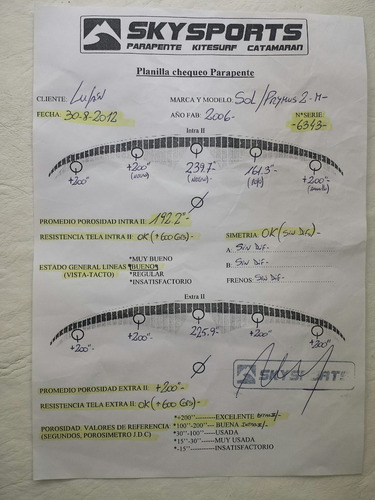 SKYSPORTS
PARAPENTE KITESURF CATAMARAN
Planilla chequeo Parapente
CLIENTE: Luján MARCA Y MODELO SOL/PRYMUS 2-M-
FECHA: 30-8-2012 AÑO FAB: 2006- N°SERIE:
-6343-
Intra II
+200" +200" 239.7" 161.3" +200"
(NEGRO) (NEGRO) (ROJO)
PROMEDIO POROSIDAD INTRA II: 192.2"-
RESISTENCIA TELA INTRA II: OK (+600 GRS) SIMETRIA OK (SIN DIF.)
A: SIN DIF-
ESTADO GENERAL LINEAS
(VISTA-TACTO)
*MUY BUENO
*BUENO*
*REGULAR
*INSATISFACTORIO
B: SIN DIF-
FRENOS: SIN DIF-
Extra II
+200"- +200"- 225.9"- +200"- +200"-
PROMEDIO POROSIDAD EXTRA II: +200"-
SKYSPORTS
RESISTENCIA TELA EXTRA II: OK (+600 GRS)-
POROSIDAD. VALORES DE REFERENCIA:
(SEGUNDOS, POROSIMETRO J.D.C)
*+200"--------EXCELENTE EXTRADO/-
*100"-200"--- BUENA INTRADO/-
*30"-100"-----USADA
*15"-30"------MUY USADA
*-15"----------INSATISFACTORIO